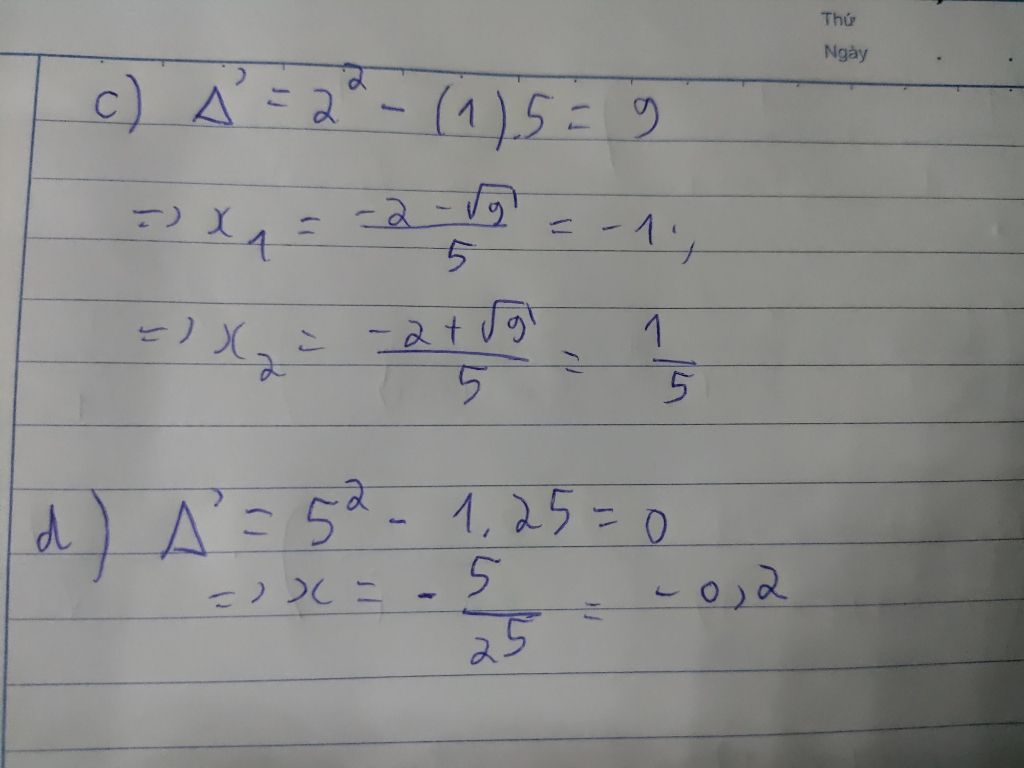 Thứ
Ngày
c) Δ' = 2² - (1).5 = 9
=> x₁ = (-2 - √9)/5 = -1;
=> x₂ = (-2 + √9)/5 = 1/5
d) Δ' = 5² - 1.25 = 0
=> x = - 5/25 = -0,2